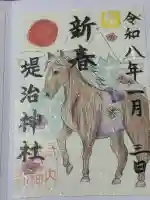 令和八年一月三日
新春
堤治神社